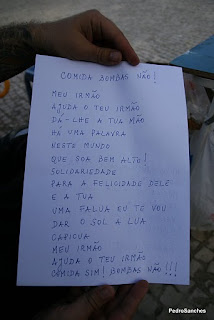 COMIDA BOMBAS NÃO!
MEU IRMÃO
AJUDA O TEU IRMÃO
DÁ-LHE A TUA MÃO
HÁ UMA PALAVRA
NESTE MUNDO
QUE SOA BEM ALTO!
SOLIDARIEDADE
PARA A FELICIDADE DELE
E A TUA
UMA FALUA EU TE VOU
DAR O SOL A LUA
CAPICUA
MEU IRMÃO
AJUDA O TEU IRMÃO
COMIDA SIM! BOMBAS NÃO!!!
PedroSanches